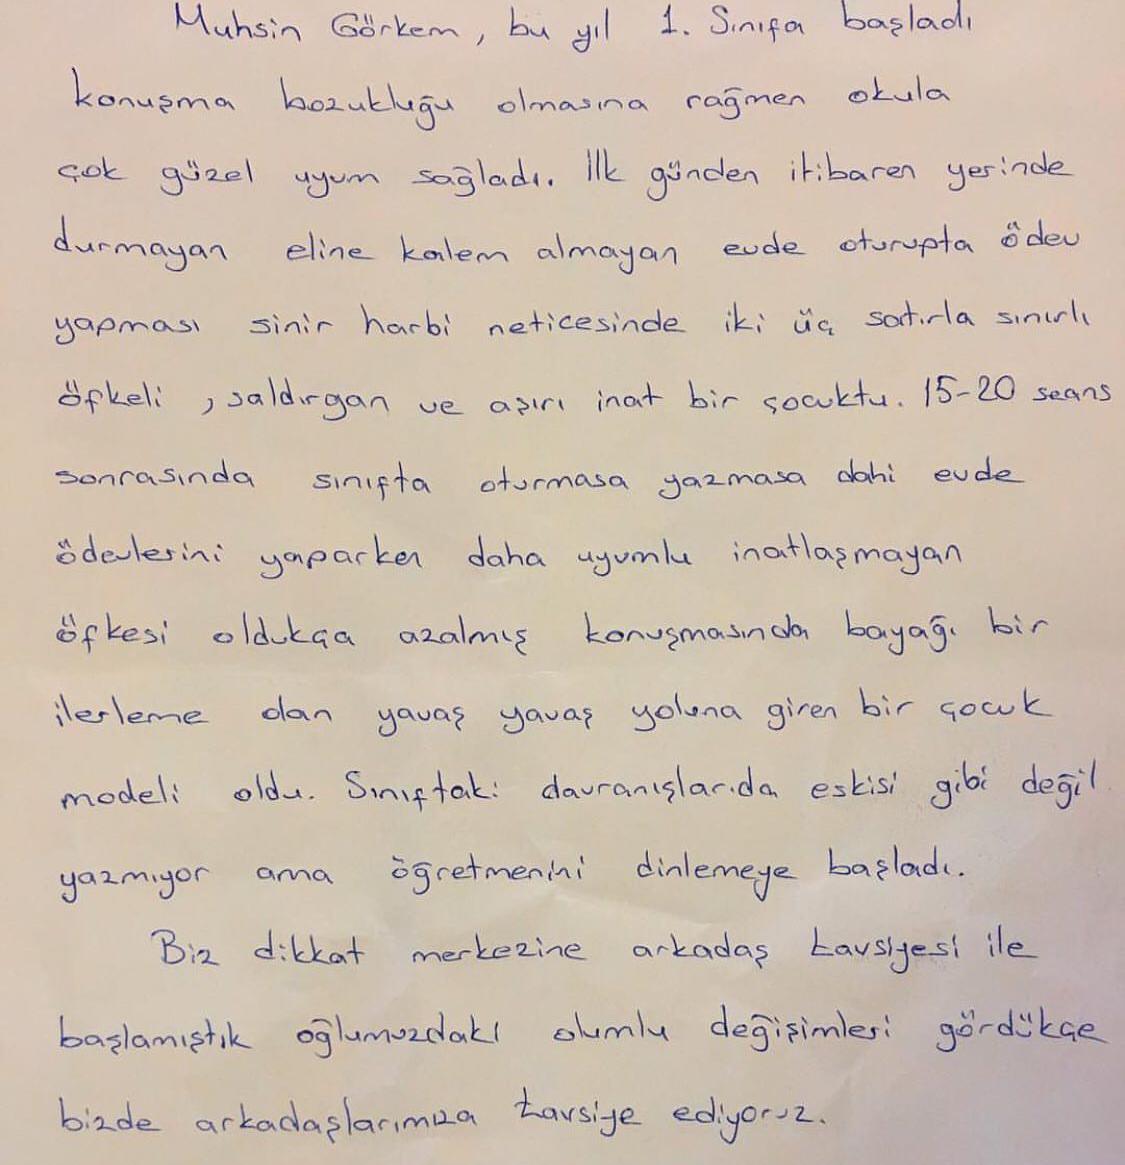 Muhsin Görkem, bu yıl 1. Sınıfa başladı
konuşma bozukluğu olmasına rağmen okula
çok güzel uyum sağladı. İlk günden itibaren yerinde
durmayan eline kalem almayan evde oturupta ödev
yapması sinir harbi neticesinde iki üç satırla sınırlı
öfkeli , saldırgan ve aşırı inat bir çocuktu. 15-20 seans
sonrasında sınıfta oturmasa yazmasa dahi evde
ödevlerini yaparken daha uyumlu inatlaşmayan
öfkesi oldukça azalmış konuşmasında bayağı bir
ilerleme olan yavaş yavaş yoluna giren bir çocuk
modeli oldu. Sınıftaki davranışlarıda eskisi gibi değil
yazmıyor ama öğretmenini dinlemeye başladı.
Biz dikkat merkezine arkadaş tavsiyesi ile
başlamıştık oğlumuzdaki olumlu değişimleri gördükçe
bizde arkadaşlarımıza tavsiye ediyoruz.